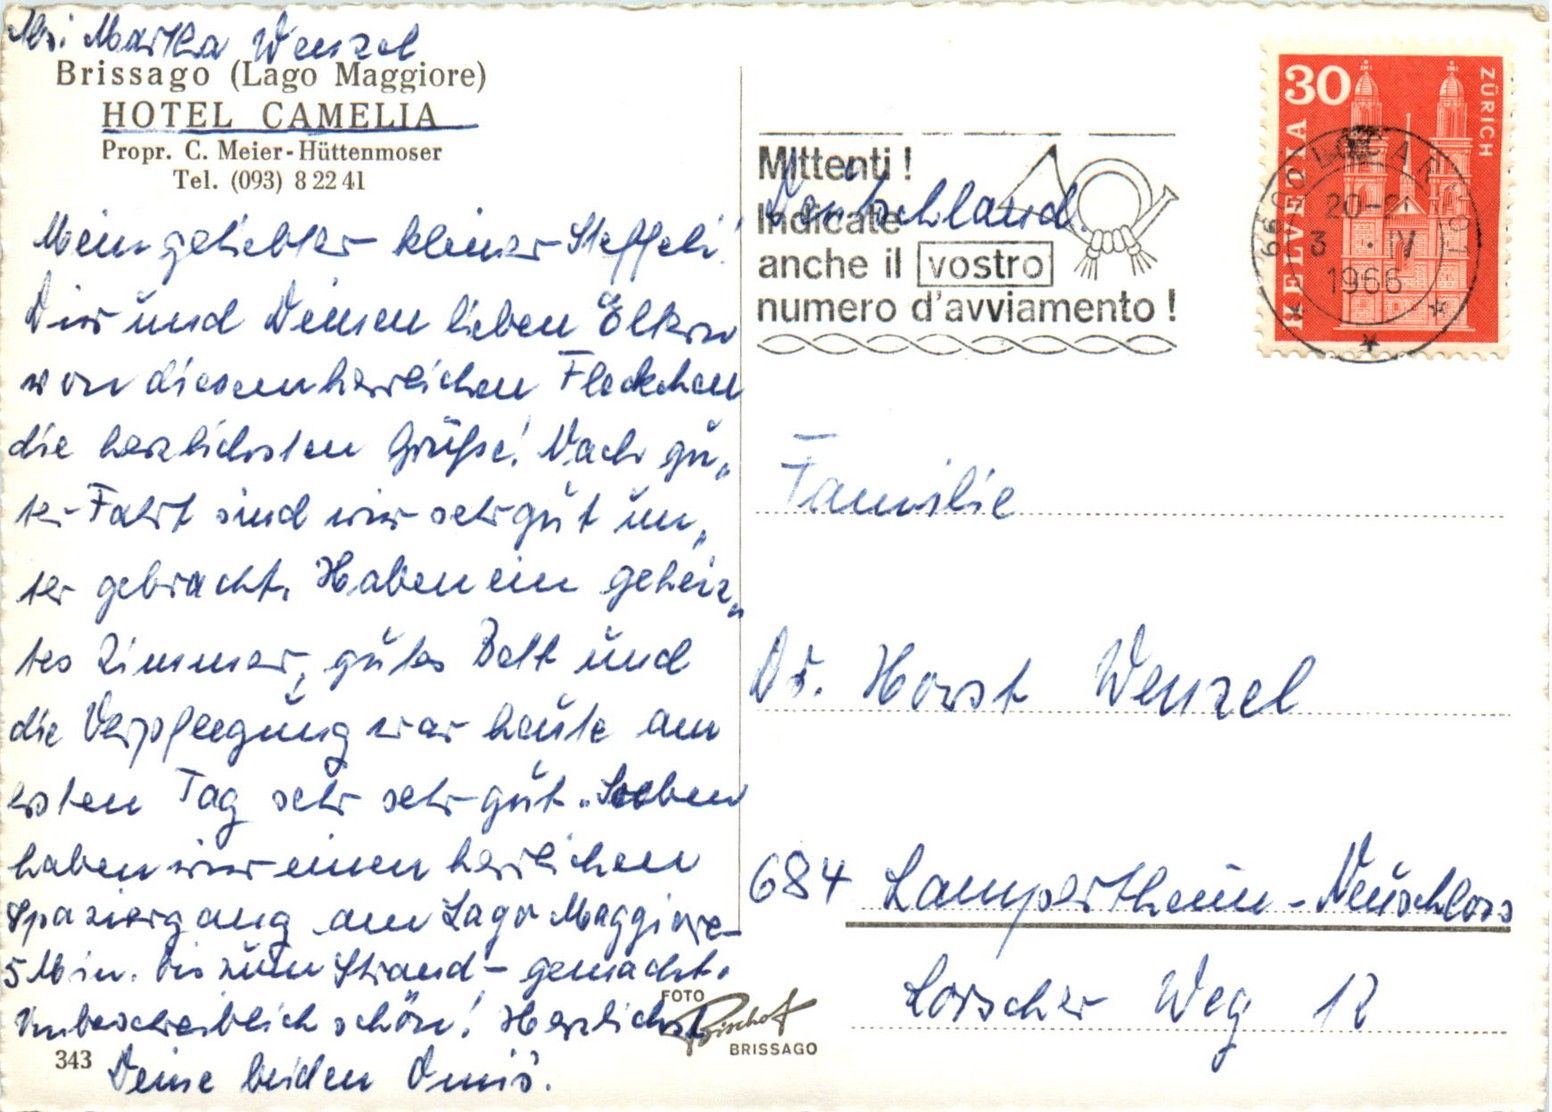 Martha Wenzel
Brissago (Lago Maggiore)
HOTEL CAMELIA
Propr. C. Meier-Hüttenmoser
Tel. (093) 8 22 41
Mein geliebter kleiner Steffeli!
Dir und Deinen lieben Eltern
von diesem herrlichen Fleckchen
die herzlichsten Grüße! Nach gu„
ter Fahrt sind wir sehr gut un„
ter gebracht. Haben ein geheiz„
tes Zimmer, gutes Bett und
die Verpflegung war heute am
ersten Tag sehr sehr gut. Soeben
haben wir einen herrlichen
Spaziergang am Lago Maggiore –
5 Min. bis zum Strand – gemacht.
Unbeschreiblich schön! Herzlichst
Deine beiden Omis.
343
FOTO
Bischof
BRISSAGO
Mittenti !
Indicate
anche il vostro
numero d'avviamento !
Deutschland.
30
ZÜRICH
HELVETIA
6600 LOCARNO 1
20-21
3 . IV
1966
Familie
Dr. Horst Wenzel
684 Lampertheim - Neuschloss
Lorscher Weg 12